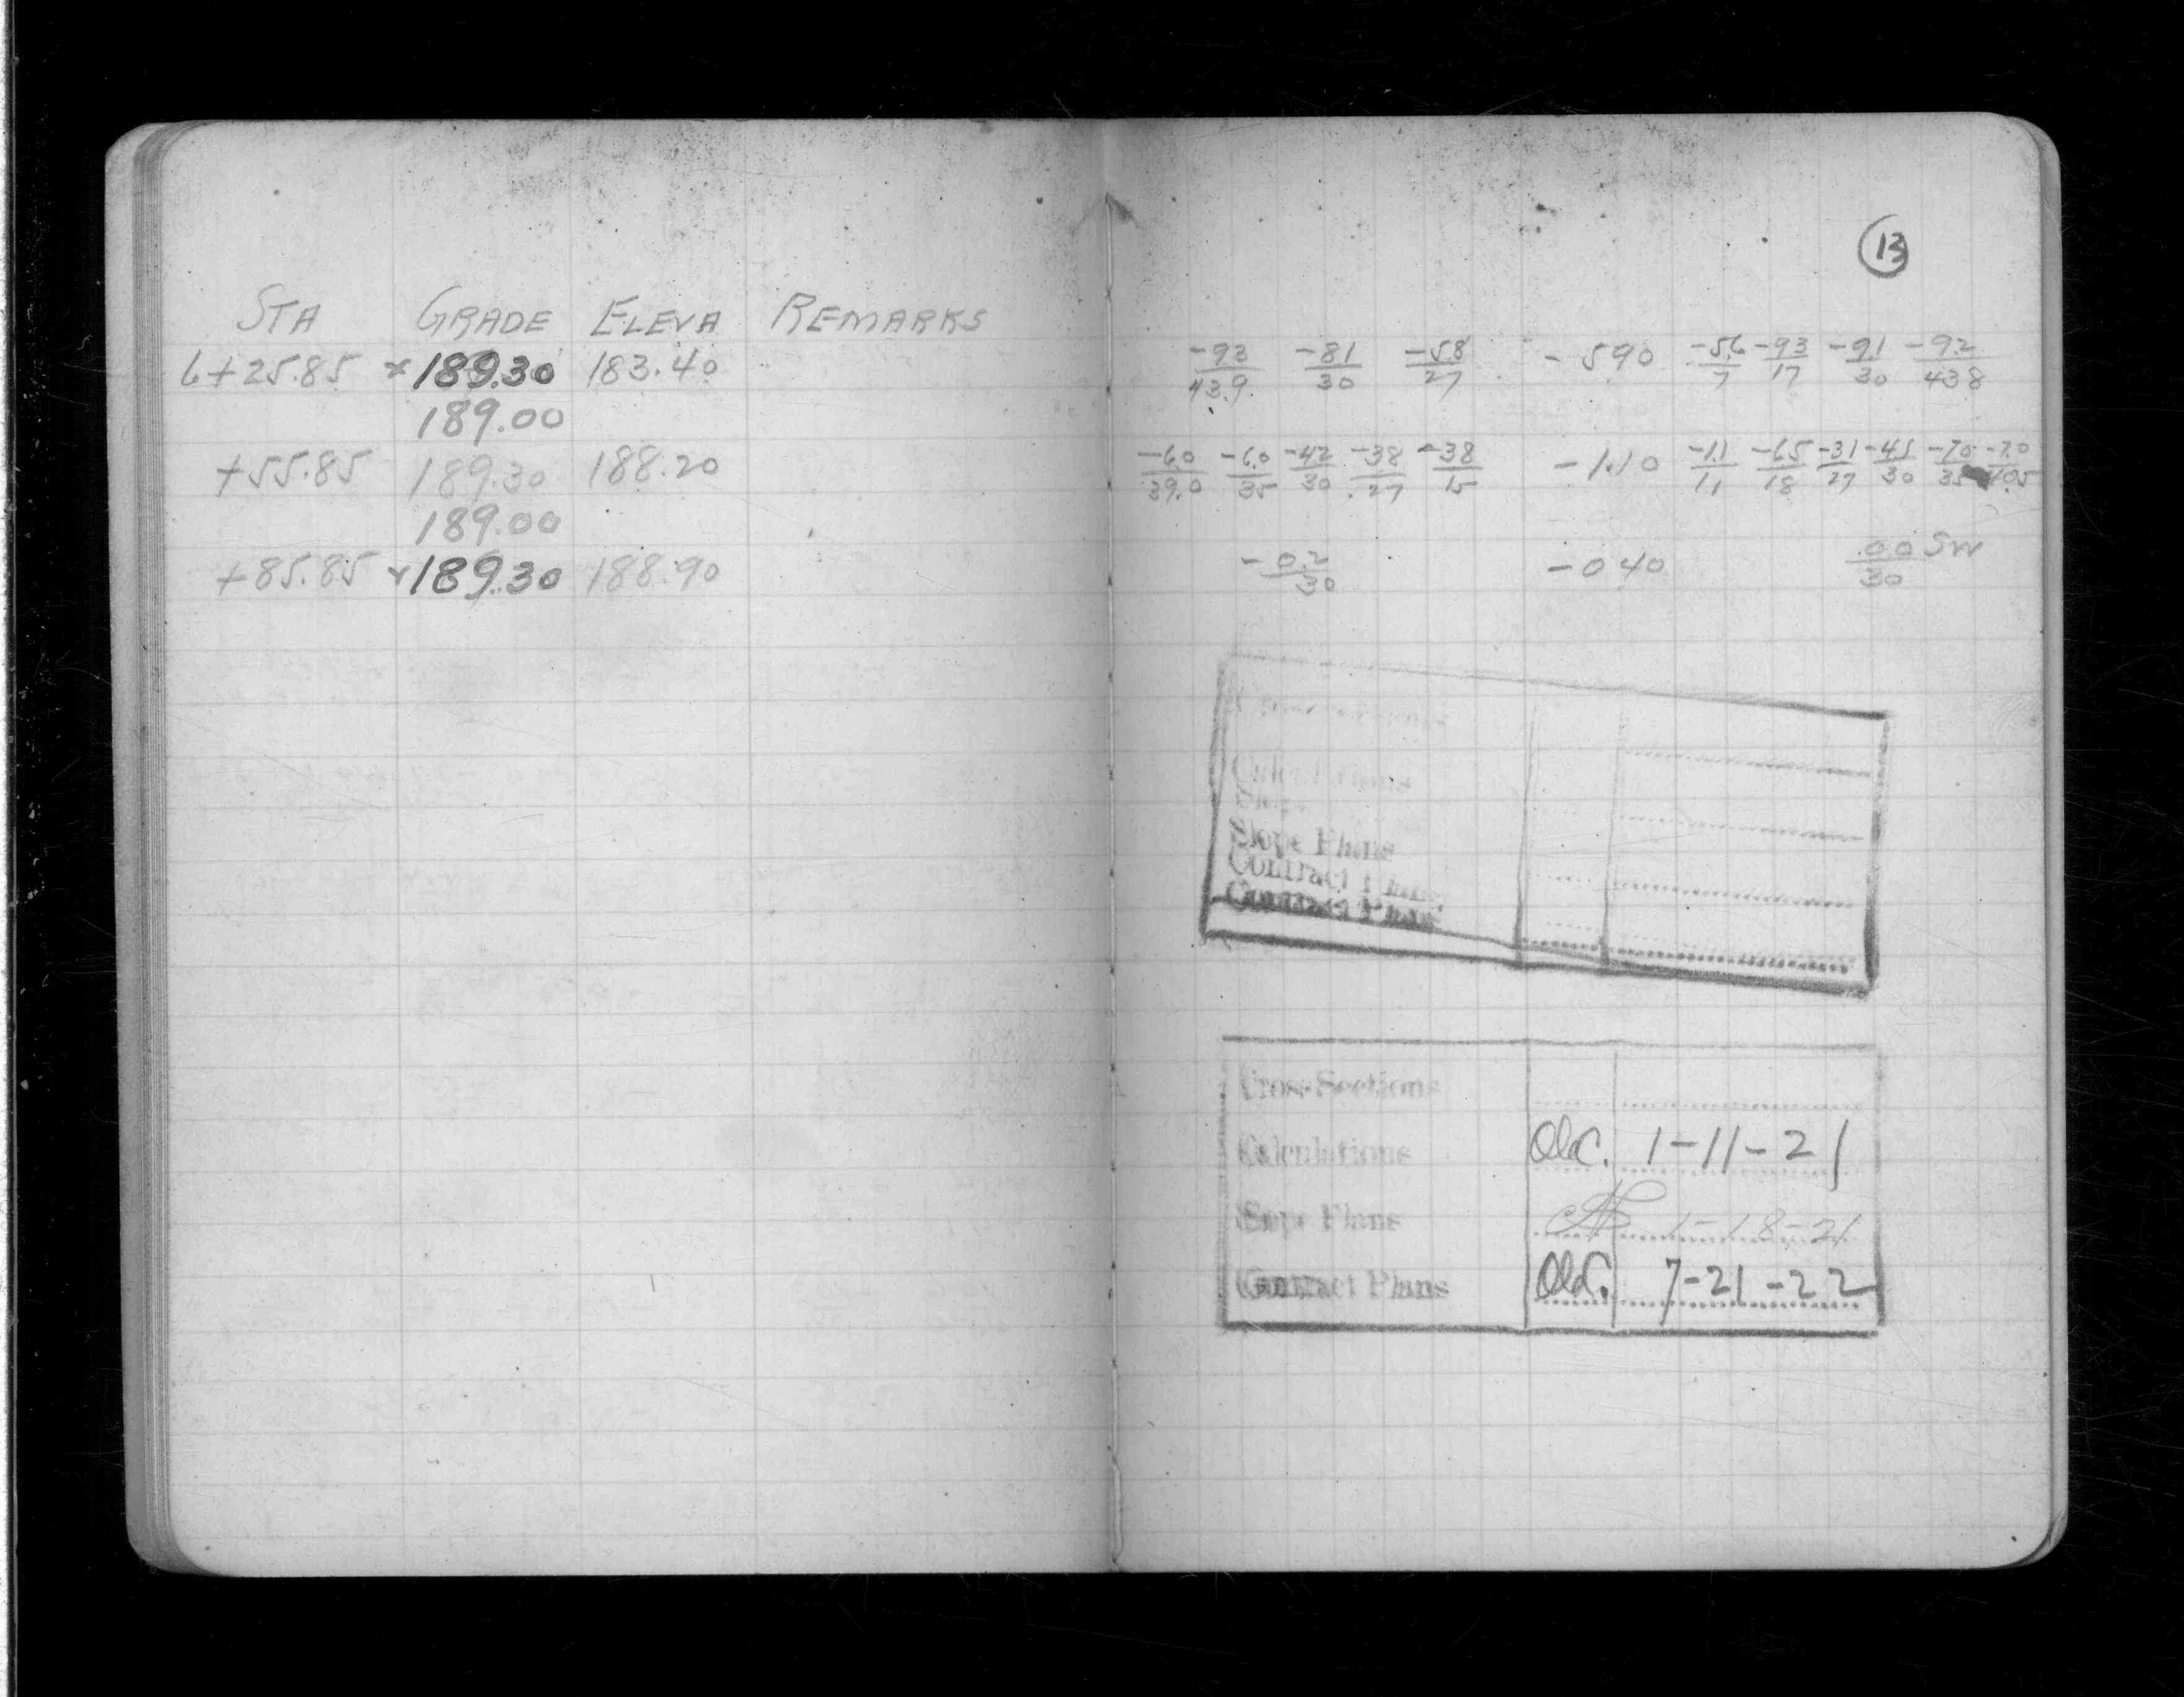 13
STA GRADE ELEVA REMARKS
6+25.85 x189.30 183.40
189.00
+55.85 189.30 188.20
189.00
+85.85 x189.30 188.90
-93/43.9 -81/30 -58/27 -590 -5.6/7 -93/17 -91/30 -9.2/438
-60/39.0 -60/35 -42/30 -38/27 -38/15 -1.10 -1.1/11 -65/18 -31/27 -41/30 -70/35 -70/405
-0.2/30 -040 .00/30 SW
Calculations
Slope
Slope Plans
Contract Plans
Contract Plans
Cross-Sections
Calculations 1-11-21
Slope Plans 1-18-21
Contract Plans 7-21-22